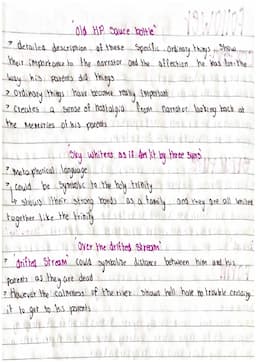 "Old HP Sauce bottle"
> detailed description of these specific ordinary things show
their importance to the narrator and the affection he has for the
way his parents did things
> Ordinary things have become really important
> creates a sense of nostalgia from narrator looking back at
the memories of his parents
"Sky whitens as if lit by three suns"
> Metaphorical language
> Could be symbolic to the holy trinity
↳ shows their strong bonds as a family and they are all united
together like the trinity
"Over the drifted stream"
> drifted stream could symbolise distance between him and his
parents as they are dead
> However the calmness of the river shows he'll have no trouble crossing
it to get to his parents